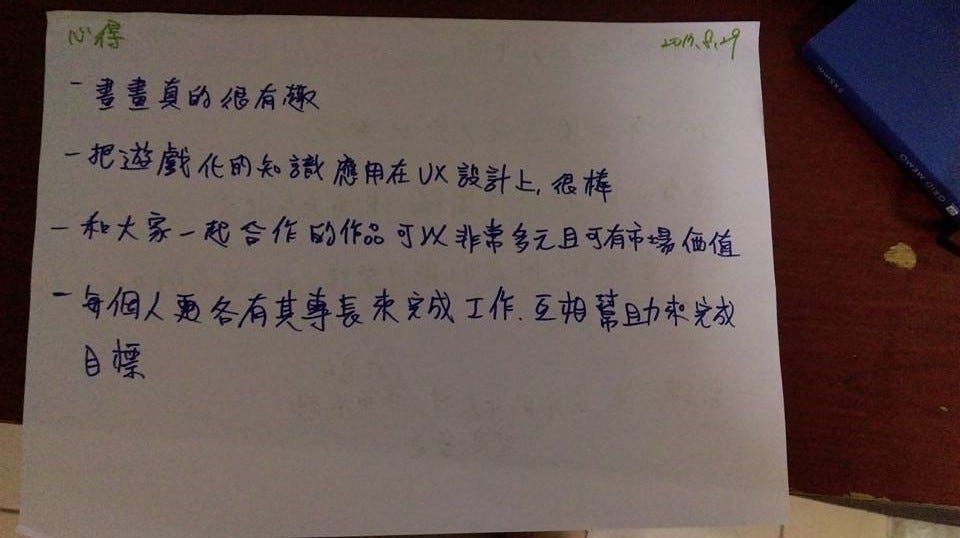 心得
2013.8.29
- 畫畫真的很有趣
- 把遊戲化的知識應用在UX設計上, 很棒
- 和大家一起合作的作品可以非常多元且可有市場価值
- 每個人更各有其專長來完成工作. 互相幫助來完成
目標
GRID MEMO